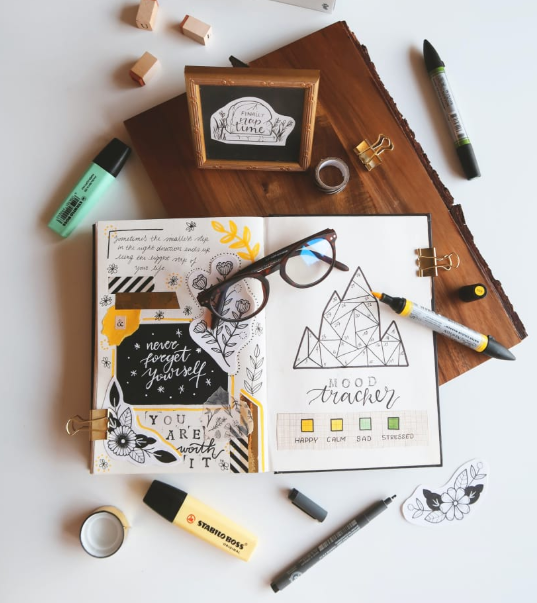 FINALLY
nap
time
Sometimes the smallest step
in the right direction ends up
being the biggest step of
your life.
&
never
forget
yourself
YOU
ARE
worth
IT
MOOD
tracker
HAPPY CALM SAD STRESSED
STABILO BOSS
ORIGINAL